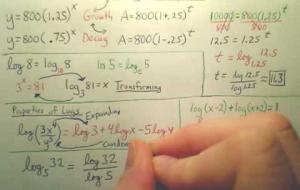 y=800(1.25)^x Growth A=800(1+.25)^t
y=800(.75)^x Decay A=800(1-.25)^t
1000=800(1.25)^t
800 800
12.5 = 1.25^t
t = log 12.5
1.25
t = log 12.5
log 1.25
11.3
log 8 = log₁₀8 ln 5 = logₑ5
3^x = 81 log₃81 = x Transforming
Properties of Logs Expanding
log(3x⁴/y⁵) = log 3 + 4 log x - 5 log y
log₅32 = log 32
log 5
log(x-2)+log(x+2)=1